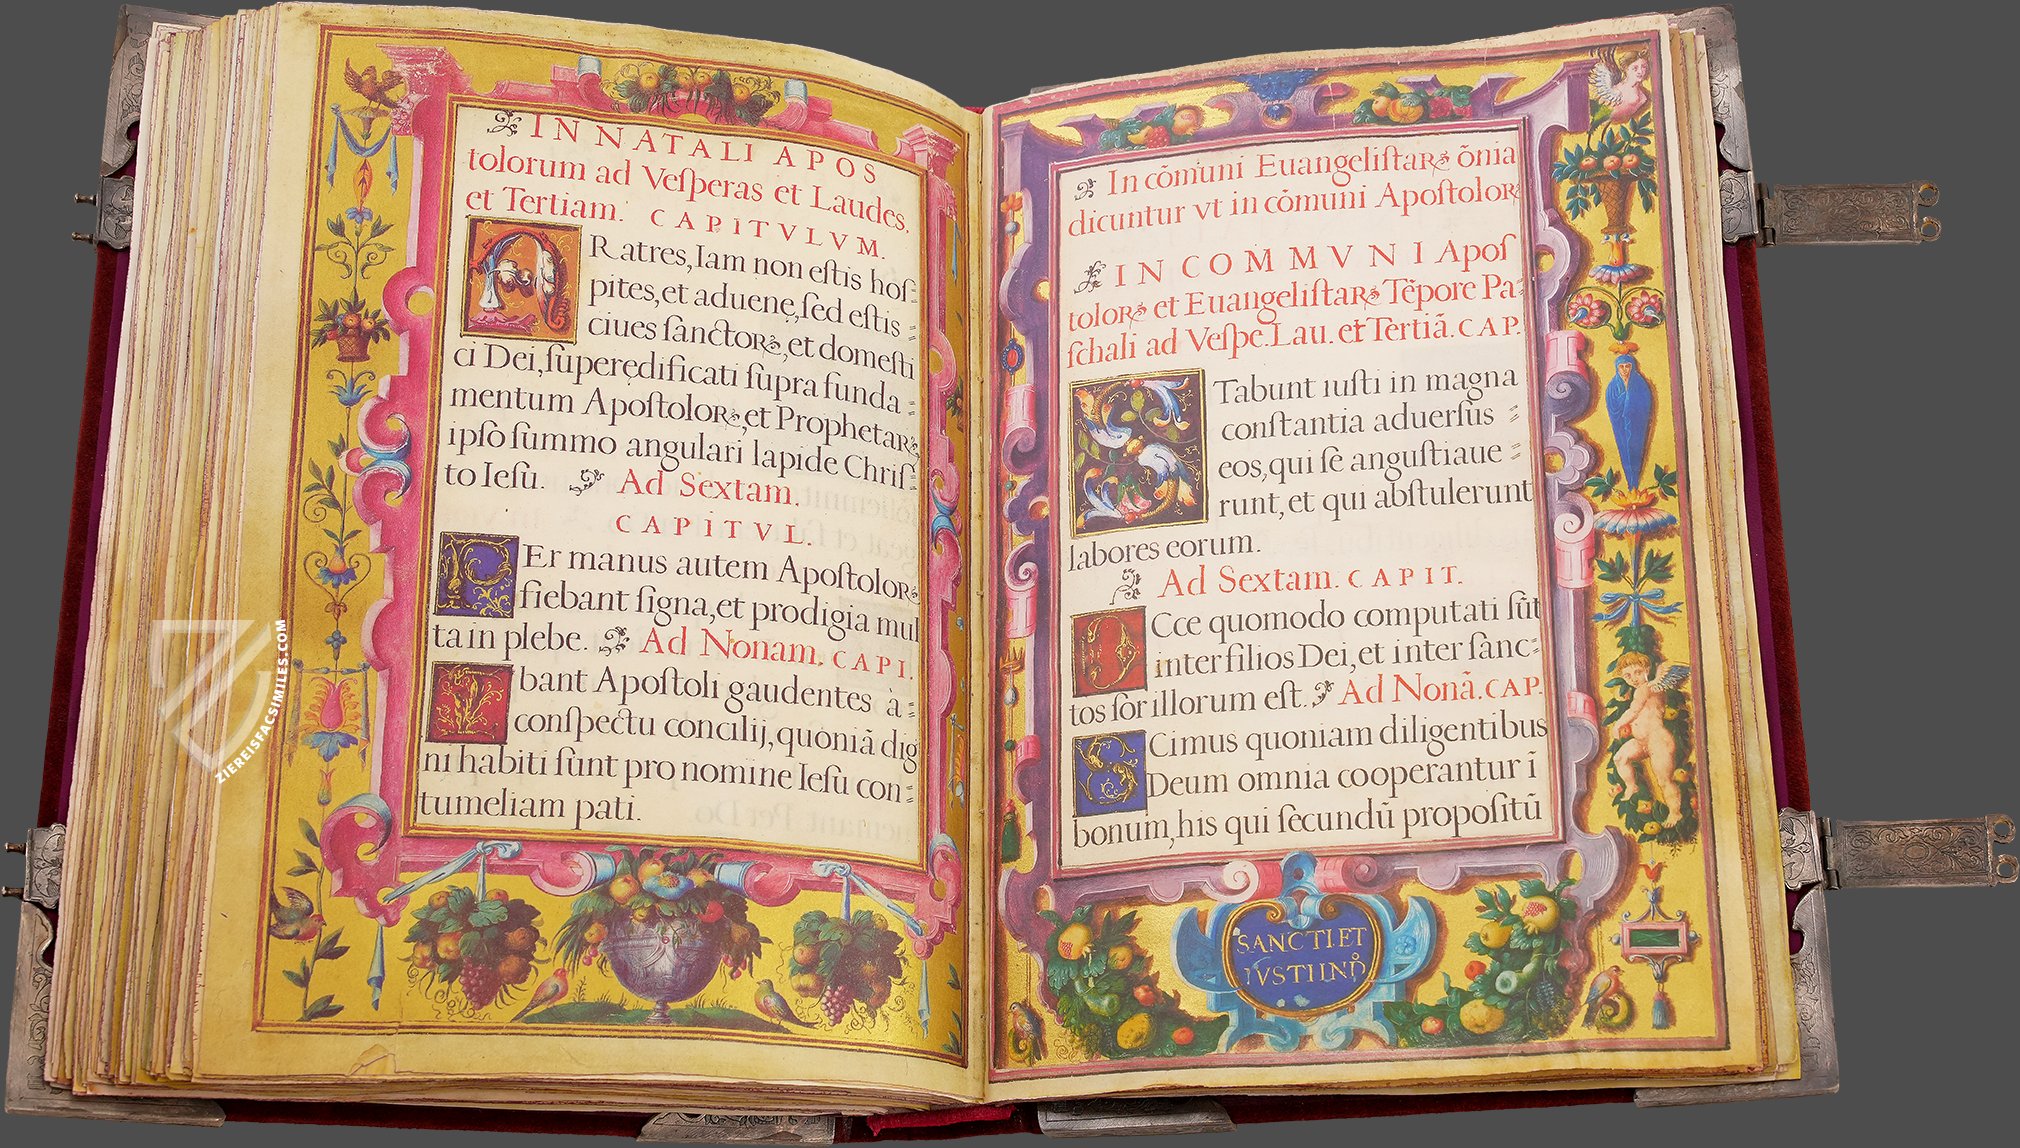 IN NATALI APOS
tolorum ad Veſperas et Laudes,
et Tertiam. CAPITVLVM.
FRatres, Iam non eſtis hoſ=
pites, et aduenę, ſed eſtis =
ciues ſanctoꝝ, et domeſti
ci Dei, ſuperędificati ſupra funda =
mentum Apoſtoloꝝ, et Prophetaꝝ,
ipſo ſummo angulari lapide Chriſ=
to Ieſu. Ad Sextam.
CAPITVL.
PEr manus autem Apoſtoloꝝ
fiebant ſigna, et prodigia mul
ta in plebe. Ad Nonam. CAPI.
Ibant Apoſtoli gaudentes à =
conſpectu concilij, quoniā dig
ni habiti ſunt pro nomine Ieſu con=
tumeliam pati.
In cōmuni Euangeliſtaꝝ ōnia
dicuntur vt in cōmuni Apoſtoloꝝ
IN COMMVNI Apoſ
toloꝝ et Euangeliſtaꝝ Tēpore Pa=
ſchali ad Veſpe. Lau. et Tertiā. CAP.
STabunt iuſti in magna
conſtantia aduerſus =
eos, qui ſe anguſtiaue =
runt, et qui abſtulerunt
labores eorum.
Ad Sextam. CAPIT.
ECce quomodo computati ſūt
inter filios Dei, et inter ſanc=
tos ſor illorum eſt. Ad Nonā. CAP.
SCimus quoniam diligentibus
Deum omnia cooperantur ī
bonum, his qui ſecundū propoſitū
SANCTI ET
IVSTI IN DO
ZIEREISFACSIMILES.COM